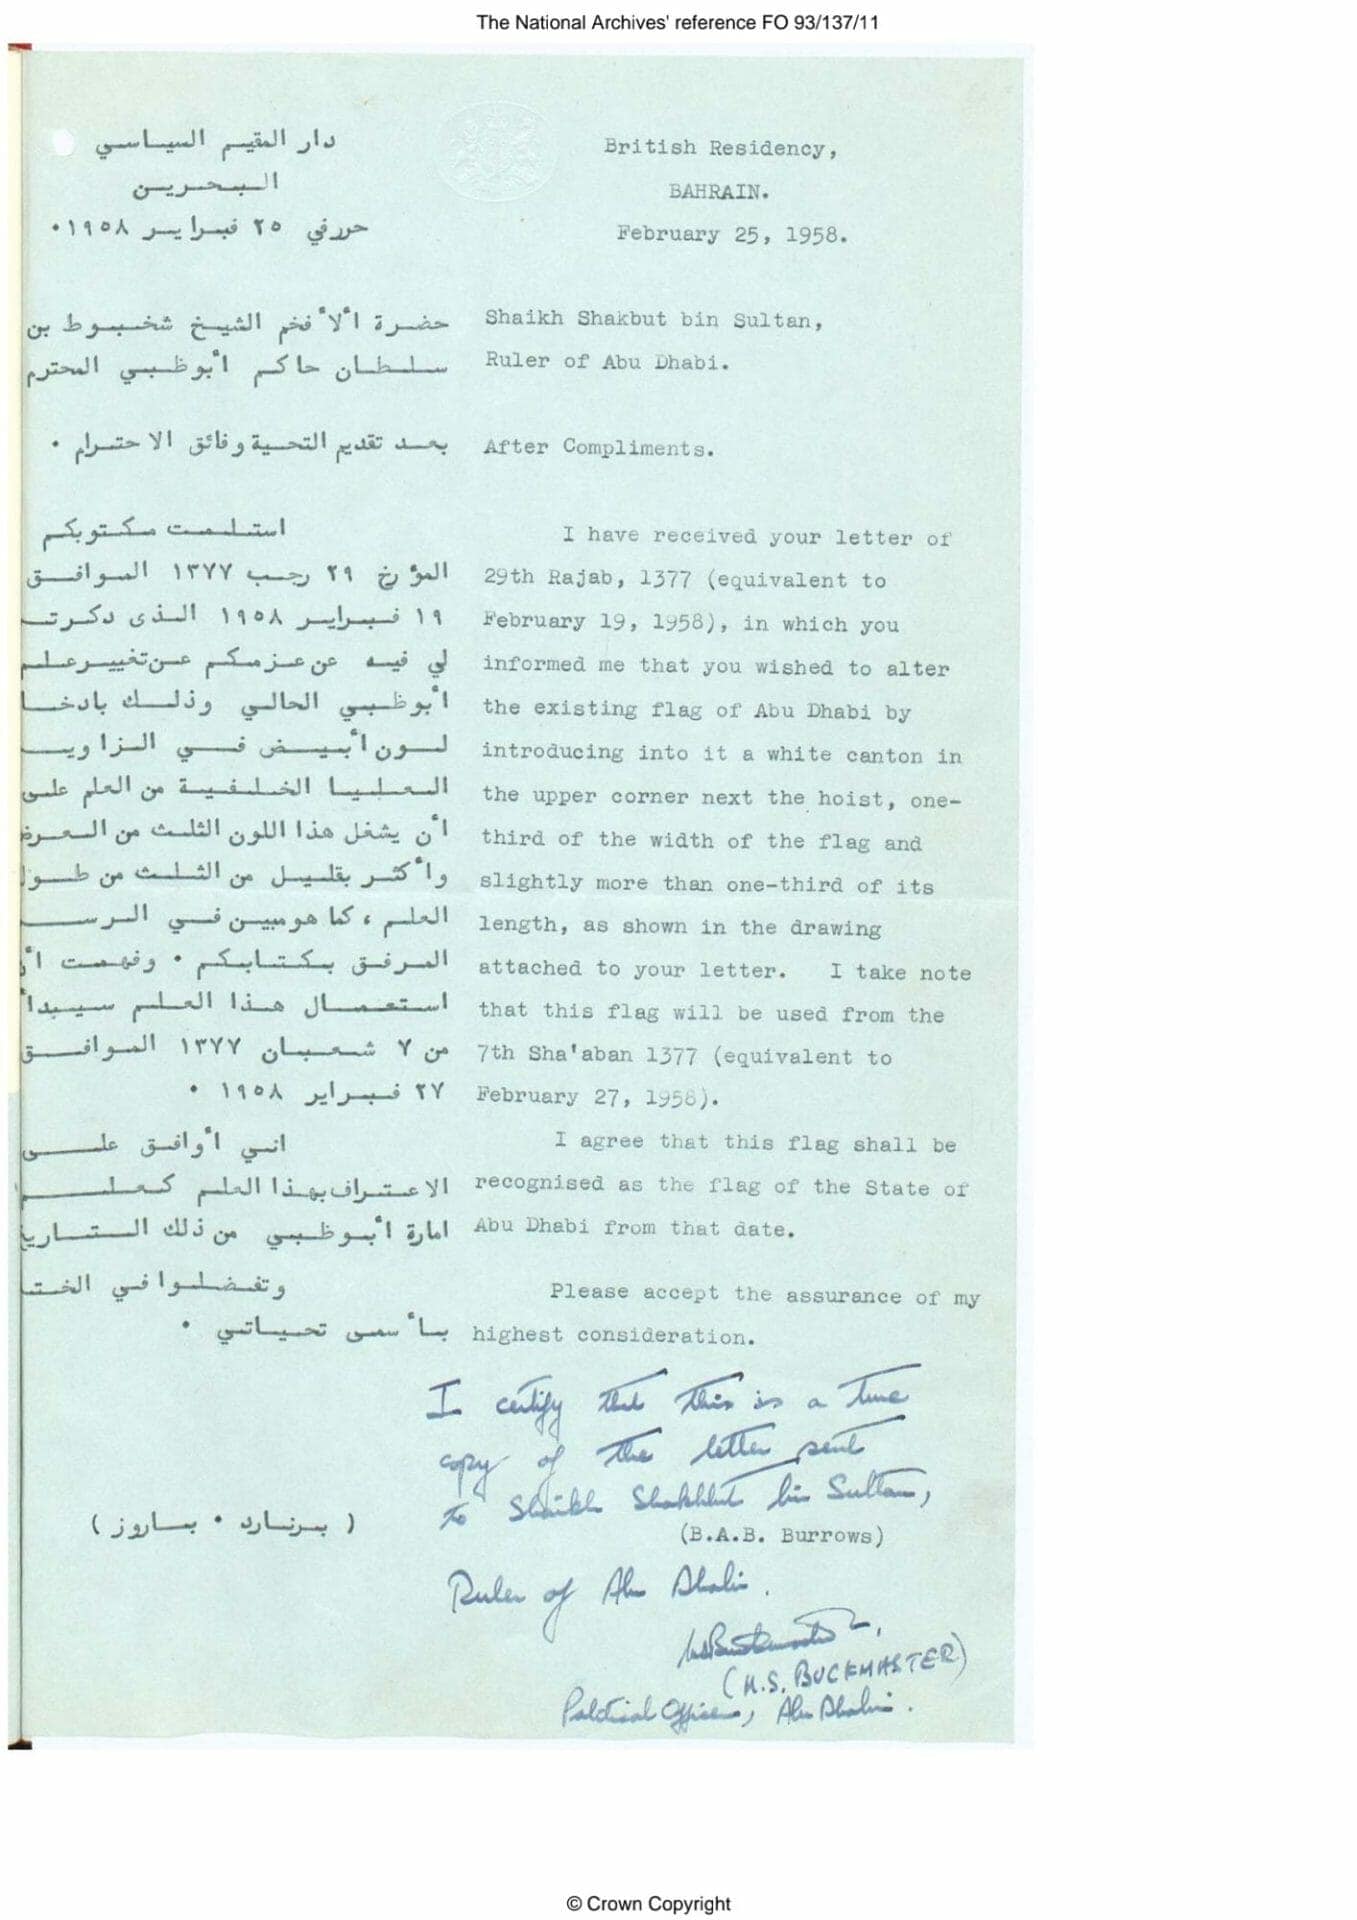 The National Archives' reference FO 93/137/11
دار المقيم السياسي
البحرين
حرر في ٢٥ فبراير ١٩٥٨٠
British Residency,
BAHRAIN.
February 25, 1958.
حضرة ألأفخم الشيخ شخبوط بن
سلطان حاكم أبوظبي المحترم
Shaikh Shakbut bin Sultan,
Ruler of Abu Dhabi.
بعد تقديم التحية وفائق الاحترام ٠
After Compliments.
استلمت مكتوبكم
المؤرخ ٢٩ رجب ١٣٧٧ الموافق
١٩ فبراير ١٩٥٨ الذى دكرت
لي فيه عن عزمكم عن تغيير علم
أبوظبي الحالي وذلك بادخا
لون أبيض في الزاوي
العليا الخلفية من العلم على
أن يشغل هذا اللون الثلث من العرض
وأكثر بقليل من الثلث من طول
العلم ، كما هو مبين في الرس
المرفق بكتابكم ٠ وفهمت أن
استعمال هذا العلم سيبدأ
من ٧ شعبان ١٣٧٧ الموافق
٢٧ فبراير ١٩٥٨ ٠
انني أوافق على
الاعتراف بهذا العلم كعلم
امارة أبوظبي من ذلك التاريخ
وتفضلوا في الخت
بأسمى تحياتي ٠
I have received your letter of
29th Rajab, 1377 (equivalent to
February 19, 1958), in which you
informed me that you wished to alter
the existing flag of Abu Dhabi by
introducing into it a white canton in
the upper corner next the hoist, one-
third of the width of the flag and
slightly more than one-third of its
length, as shown in the drawing
attached to your letter. I take note
that this flag will be used from the
7th Sha'aban 1377 (equivalent to
February 27, 1958).
I agree that this flag shall be
recognised as the flag of the State of
Abu Dhabi from that date.
Please accept the assurance of my
highest consideration.
I certify that this is a true
copy of the letter sent
to Shaikh Shakhbut bin Sultan,
( برنارد ٠ باروز )
(B.A.B. Burrows)
Ruler of Abu Dhabi.
(M.S. BUCKMASTER)
Political Officer, Abu Dhabi.
© Crown Copyright